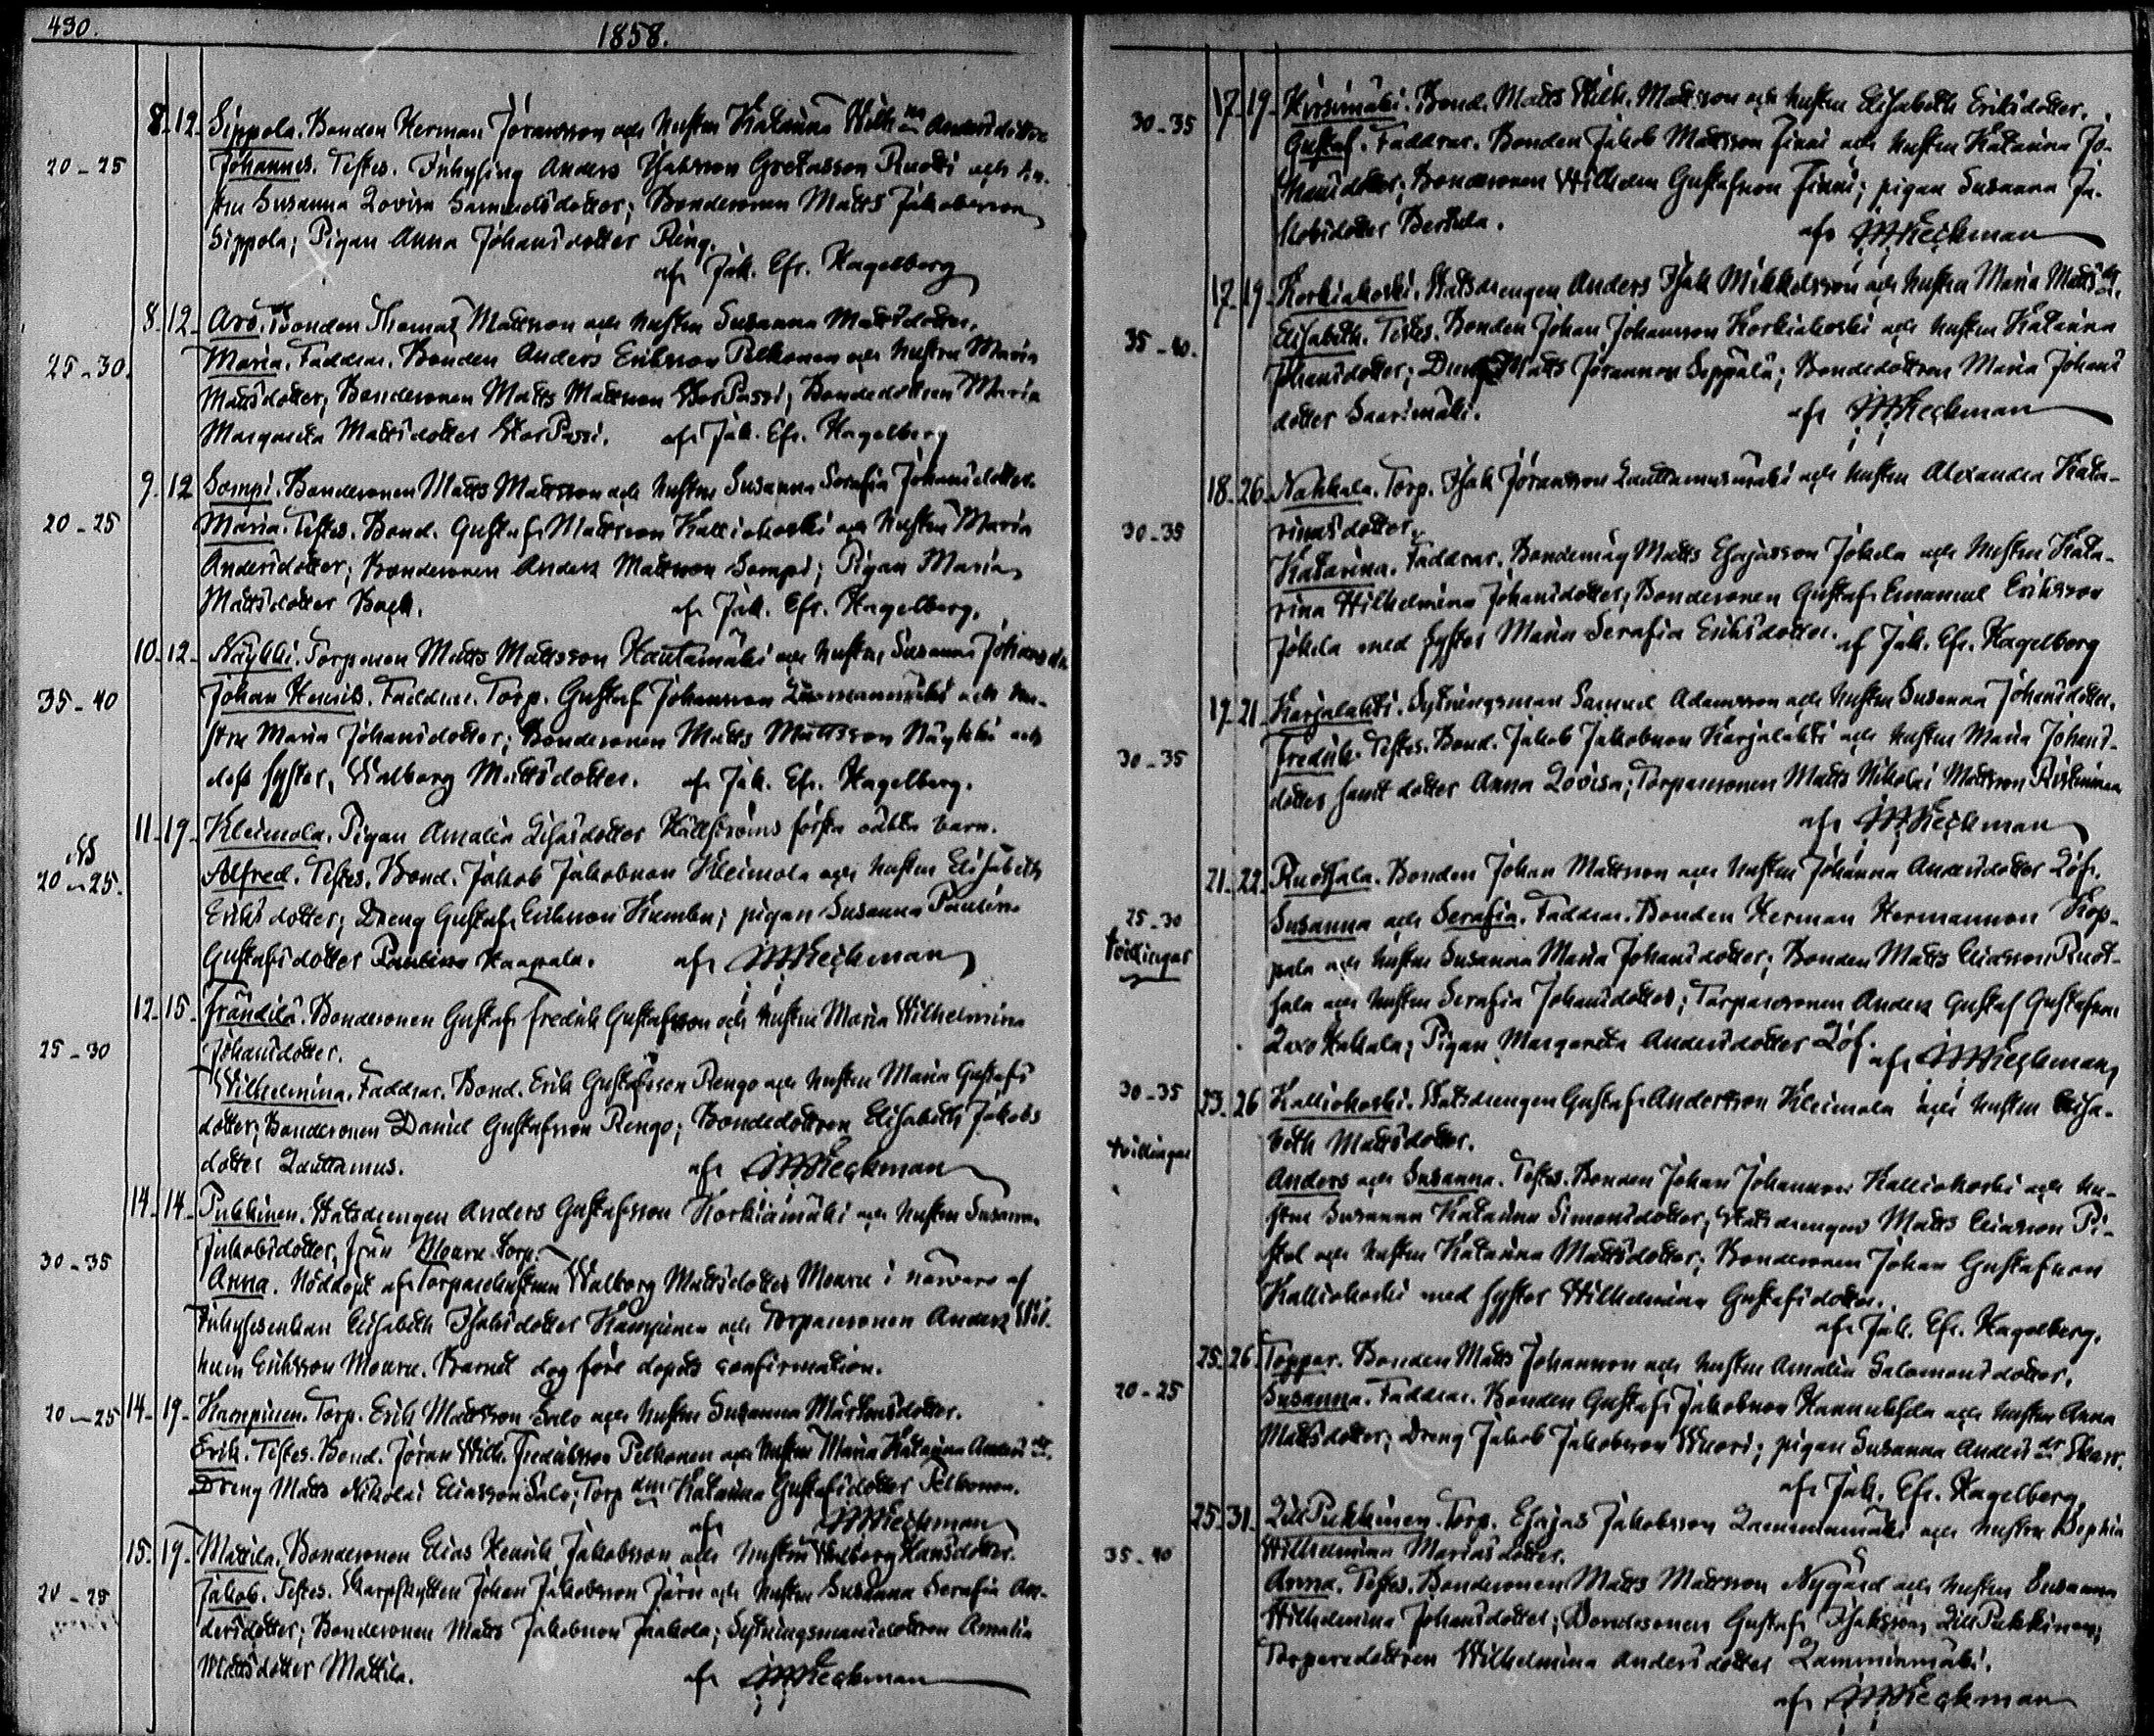 490.
1858.
8. 12. Sippola. Bonden Herman Jöransson och hustru Katarina Wilh:na Andersdotter
20-25 Johannes. Testes. Inhysing Anders Isaksson Gretasson Ruotti och hu-
stru Susanna Lovisa Samuelsdotter; Bondesonen Matts Jakobsson
Sippola; Pigan Anna Johansdotter Ring.
af Jak. Efr. Hagelberg
8. 12. Aro. Bonden Thomas Mattsson och hustru Susanna Mattsdotter.
25-30. Maria. Faddrar. Bonden Anders Eriksson Pelkonen och hustru Maria
Mattsdotter; Bondesonen Matts Mattsson StorPassi; Bondedottren Maria
Margareta Mattsdotter StorPassi. af Jak. Efr. Hagelberg
9. 12 Sompi. Bondesonen Matts Mattsson och hustru Susanna Serafia Johansdotter.
20-25 Maria. Testes. Bond. Gustaf Mattsson Kalliokoski och hustru Maria
Andersdotter; Bondesonen Anders Mattsson Sompi; Pigan Maria
Mattsdotter Back. af Jak. Efr. Hagelberg.
10. 12. Näykki. Torparen Matts Mattsson Hautamäki och hustru Susanna Johansdr
35-40 Johan Henrik. Faddrar. Torp. Gustaf Johansson och hu-
stru Maria Johansdotter; Bondesonen Matts Mattsson Näykki och
dess syster, Walborg Mattsdotter. af Jak. Efr. Hagelberg.
11. 19. Kleimola. Pigan Amalia Lisasdotter Hällströms första oäkta barn.
20-25. Alfred. Testes. Bond. Jakob Jakobsson Kleimola och hustru Elisabeth
Eriksdotter; Dreng Gustaf Eriksson Humbu; pigan Susanna Paulina
Gustafsdotter Paulina Haapala. af Wieckman
12. 15. Frändilä. Bondesonen Gustaf Fredrik Gustafsson och hustru Maria Wilhelmina
25-30 Johansdotter.
Wilhelmina. Faddrar. Bond. Erik Gustafsson Rengo och hustru Maria Gustafs
dotter; Bondesonen Daniel Gustafsson Rengo; Bondedottren Elisabeth Jakobs
dotter Lauttamus. af Wieckman
14. 14. Pukkinen. Statsdrengen Anders Gustafsson Korkiamäki och hustru Susanna
30-35 Jakobsdotter, från Mouru Torp.
Anna. Nöddöpt af Torparehustrun Walborg Mattsdotter Mouru i närvaro af
Inhyseenkan Elisabeth Isaksdotter Kampinen och Torparesonen Anders Wil-
helm Eriksson Mouru. Barnet dog före dopets confirmation.
20-25 14. 19. Kampinen. Torp. Erik Mattsson Salo och hustru Susanna Mårtensdotter.
Erik. Testes. Bond. Jöran Wilh. Fredriksson Pelkonen och hustru Maria Katarina Anders dr.
Dreng Matts Nikolai Eliasson Salo; Torp. dr Katarina Gustafsdotter Pelkonen.
af Wieckman
15. 19. Mattila. Bondesonen Elias Henrik Jakobsson och hustru Walborg Hansdotter.
20-25 Jakob. Testes. Skarpskytten Johan Jakobsson Järn och hustru Susanna Serafia An-
dersdotter; Bondesonen Matts Jakobsson Jaakola; Sytningsmansdottren Amalia
Mattsdotter Mattila. af Wieckman
17. 19. Kirsimäki. Bond. Matts Wilh. Mattsson och hustru Elisabeth Eriksdotter.
30-35 Gustaf. Faddrar. Bonden Jakob Mattsson Finni och hustru Katarina Jo-
hansdotter; Bondesonen Wilhelm Gustafsson Finni; pigan Susanna Ja-
kobsdotter Bertula.
af Wieckman
17. 19. Korkiakoski. Statsdrengen Anders Isak Mikkelsson och hustru Maria Matts dr.
35-40. Elisabeth. Testes. Bonden Johan Johansson Korkiakoski och hustru Katarina
Johansdotter; Dreng Matts Jöransson Seppälä; Bondedottren Maria Johans
dotter Saarimäki. af Wieckman
18. 26. Nahkala. Torp. Isak Jöransson Lauttamusmäki och hustru Alexandra Kata-
30-35 rinasdotter.
Katarina. Faddrar. Bondemåg Matts Esajasson Jokela och hustru Kata-
rina Wilhelmina Johansdotter; Bondesonen Gustaf Emanuel Eriksson
Jokela med syster Maria Serafia Eriksdotter. af Jak. Efr. Hagelberg
19. 21. Karjalahti. Sytningsman Samuel Adamsson och hustru Susanna Johansdotter.
30-35 Fredrik. Testes. Bond. Jakob Jakobsson Karjalahti och hustru Maria Johans-
dotter samt dotter Anna Lovisa; Torparesonen Matts Nikolai Mattsson
af Wieckman
21. 22. Ruotsala. Bonden Johan Mattsson och hustru Johanna Andersdotter Löf.
25-30 Susanna och Serafia. Faddrar. Bonden Herman Hermansson Kop-
tvillingar pala och hustru Susanna Maria Johansdotter; Bonden Matts Eliasson Ruot-
sala och hustru Serafia Johansdotter; Torparesonen Anders Gustaf Gustafsson
Laxo Hakala; Pigan Margareta Andersdotter Löf. af Wieckman
30-35 23. 26 Kalliokoski. Statsdrengen Gustaf Andersson Kleimola och hustru Elisa-
tvillingar beth Mattsdotter.
Anders och Susanna. Testes. Bonden Johan Johansson Kalliokoski och hu-
stru Susanna Katarina Simonsdotter; Statsdrengen Matts Eliasson Pi-
stol och hustru Katarina Mattsdotter; Bondesonen Johan Gustafsson
Kalliokoski med syster Wilhelmina Gustafsdotter.
af Jak. Efr. Hagelberg.
25. 26. Toppar. Bonden Matts Johansson och hustru Amalia Salomonsdotter.
20-25 Susanna. Faddrar. Bonden Gustaf Jakobsson Hannuksela och hustru Anna
Mattsdotter; Dreng Jakob Jakobsson Wuori; pigan Susanna Anders dr Skarr.
af Jak. Efr. Hagelberg
25. 31. LillPukkinen. Torp. Esajas Jakobsson Lamminmäki och hustru Sophia
35-40 Wilhelmina Mariasdotter.
Anna. Testes. Bondesonen Matts Mattsson Nygård och hustru Susanna
Wilhelmina Johansdotter; Bondesonen Gustaf Isaksson LillPukkinen;
Torparedottren Wilhelmina Andersdotter Lamminmäki.
af Wieckman